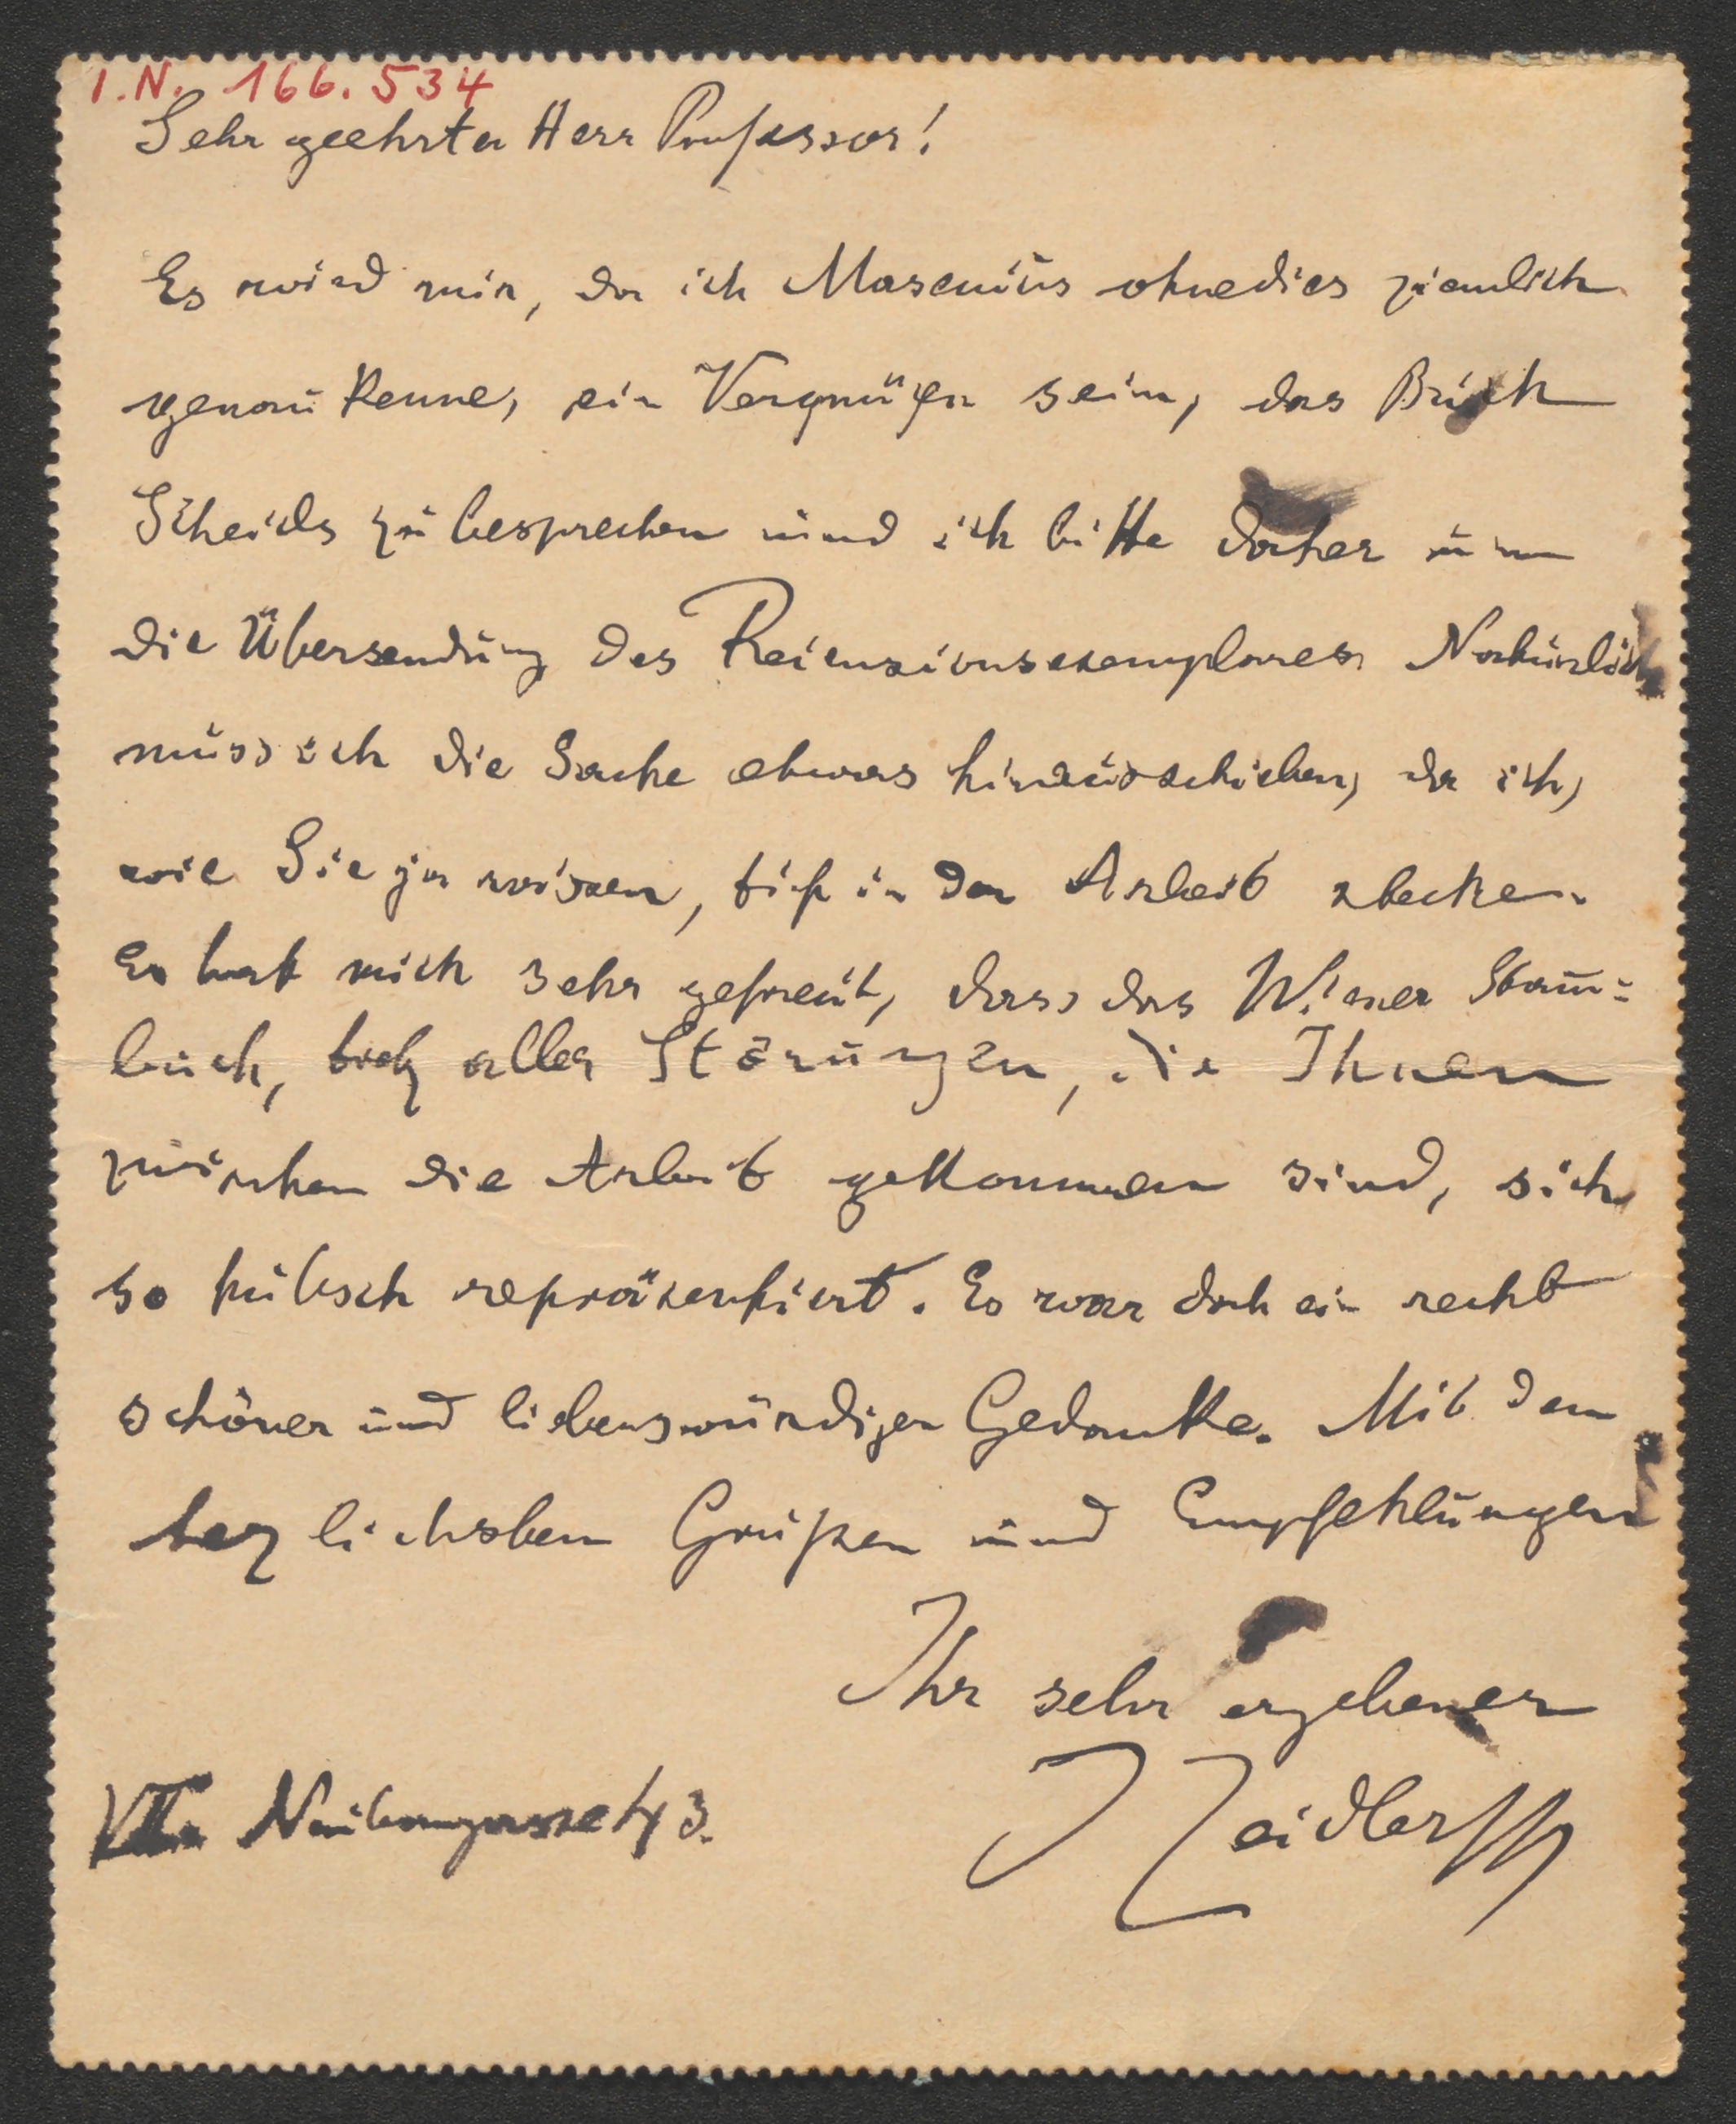 I.N. 166.534
Sehr geehrter Herr Professor!
Es wird mir, da ich Masenius ohnedies ziemlich
genau kenne, ein Vergnügen sein, das Buch
Scheids zu besprechen und ich bitte daher um
die Übersendung des Reienzionsexemplares. Natürlich
muss ich die Sache etwas hinausschieben, da ich,
wie Sie ja wissen, tief in der Arbeit stecke.
Es hat mich sehr gefreut, dass das Wiener Stamm-
buch, trotz aller Störungen, die Ihnen
zwischen die Arbeit gekommen sind, sich
so hübsch repräsentiert. Es war doch ein recht
schöner und liebenswürdiger Gedanke. Mit den
herzlichsten Grüßen und Empfehlungen
Ihr sehr ergebener
J Zeidler
VII. Neubaugasse 43.